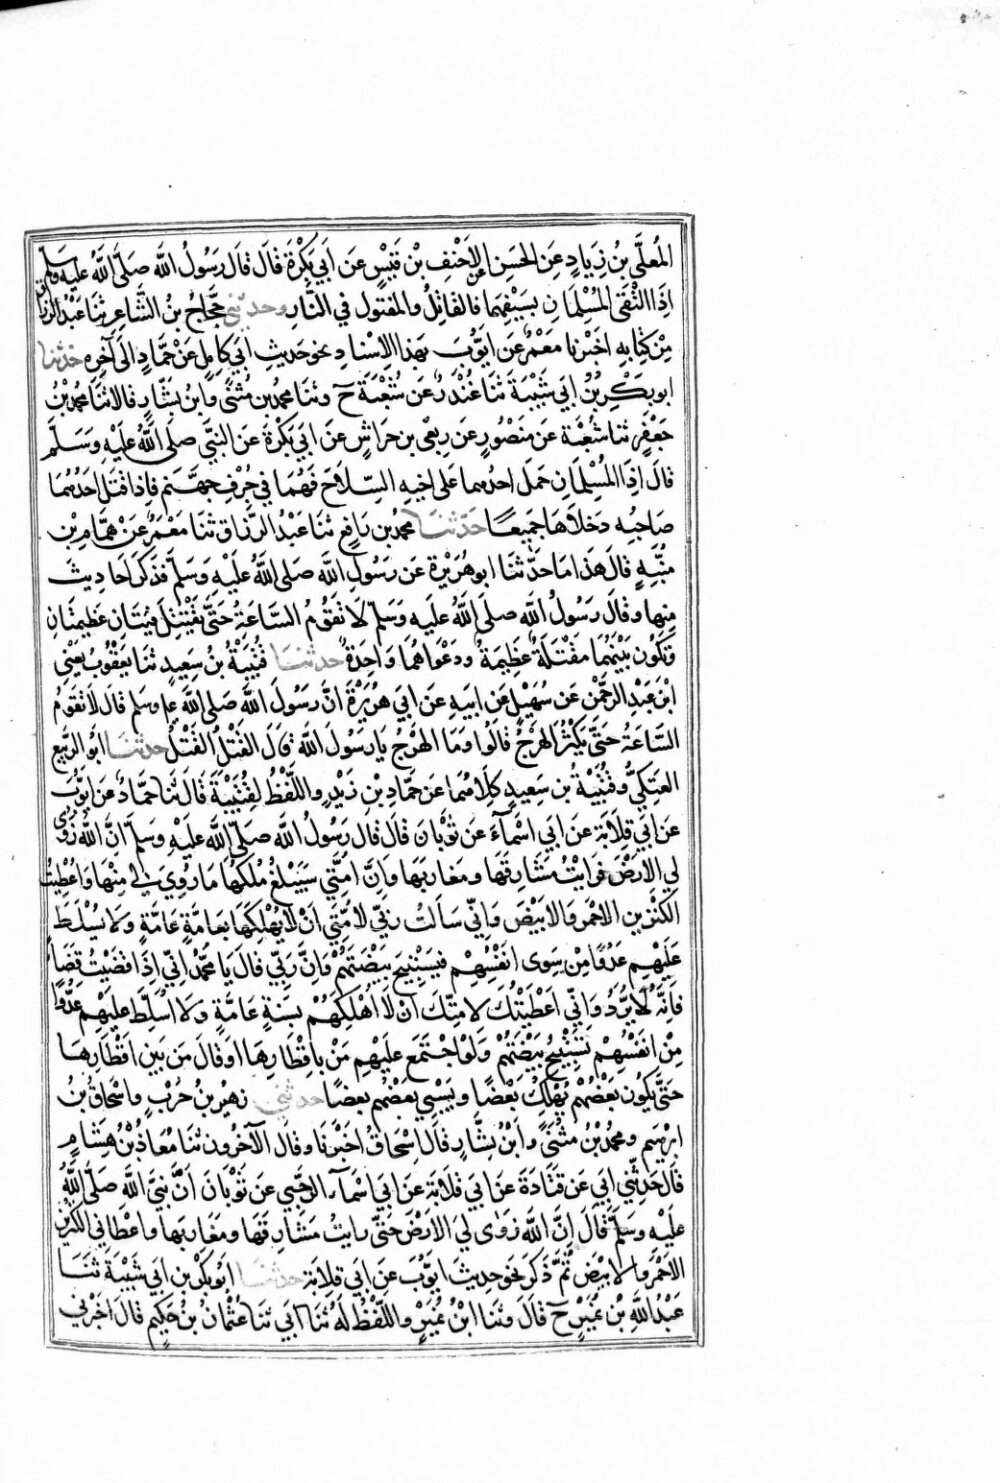 المُعلَّى بنُ زِيَادٍ عَنِ الحَسَنِ عن الاَحْنِفِ بْن قَيْسٍ عَن اَبي بَكْرَةَ قَالَ قَالَ رَسُولُ اللَّه صَلَّى اللَّهُ عليه وسلَّم
اِذَا الْتَقَى المُسْلِمَانِ بِسَيْفِهِمَا فَالقَاتِلُ وَالمَقْتُولُ فِي النَّارِ وحدثني حَجَّاجُ بنُ الشَّاعِرِ ثنا عَبْدُ الرزاق
مِنْ كِتَابِه اَخْبَرنا مَعْمَرٌ عَن اَيُّوبَ بِهَذا الاِسْنَادِ نحو حَدِيثِ اَبي كَامِلٍ عَنْ حَمَّادٍ اِلَى آخِرِه حدثنا
ابو بَكْرِ بْنُ اَبِي شَيْبَةَ ثَنَا غُنْدَرٌ عَن شُعْبَةَ ح وثنا محمد بن مُثنَّى وَابن بَشَّارٍ قَالا ثَنَا محمد بْنُ
جَعْفَرٍ ثنا شعْبَة عَن مَنصُورٍ عَن رِبْعِي بن حِرَاشٍ عَن اَبي بَكْرَةَ عَنِ النبَيّ صلَى اللَّهُ عَلَيْهِ وَسَلَّمَ
قَالَ اِذَا المُسْلِمَانِ حَمَلَ اَحدُهمَا عَلى اَخِيهِ السِّلاَحَ فَهُمَا فِي جُرُفِ جَهَنَّمَ فَاِذا قَتَلَ اَحَدُهُمَا
صَاحِبَه دَخَلاَهَا جَمِيعًا حَدَّثنَا محمد بن رَافِعٍ ثنَا عَبْدُ الرَّزَّاق ثنَا مَعْمَرٌ عَنْ هَمَّامِ بْنِ
مُنَبِّهٍ قَالَ هَذَا مَا حَدَّثنَا ابو هُرَيْرَةَ عَن رَسُولِ اللَّه صَلَى اللَّهُ عَلَيْهِ وَسَلَّمَ فَذَكَرَ اَحَادِيثَ
مِنها وَقَالَ رَسُولُ اللَّه صلَى اللَّهُ عَلَيه وَسَلَّمَ لاَ تَقُومُ السَّاعَةُ حَتَّى تَقْتَتِلَ فِئَتَانِ عَظِيمَتَانِ
وَتَكُونَ بَيْنَهُمَا مَقْتَلَةٌ عَظِيمَةٌ وَدَعْوَاهُمَا وَاحِدَةٌ حدثنا قُتَيْبَةُ بنُ سَعِيدٍ ثنَا يَعْقُوبُ يَعْنِي
ابْنَ عَبْدِ الرَّحْمٰن عَن سُهَيْلٍ عَن اَبِيهِ عَن اَبي هُرَيْرَةَ اَنَّ رَسُولَ اللَّه صَلى اللَّه علَيه وسلم قَالَ لاَ تَقُومُ
السَّاعَةُ حَتَّى يَكْثُرَ الهَرْجُ قَالُوا وَمَا الهَرْجُ يَا رَسُولَ اللَّه قَالَ القَتْلُ القَتْلُ حدثنَا ابو الرَّبِيع
العَتَكِيُّ وقُتَيْبَةُ بن سَعِيدٍ كِلاَهُمَا عَن حَمَّادِ بْن زَيْدٍ وَاللَّفْظُ لِقُتَيْبَةَ قَالَ ثَنَا حَمَّادٌ عَن اَيُّوبَ
عَن اَبي قِلاَبَةَ عَن اَبي اَسْمَآءَ عَن ثَوْبَانَ قَالَ قَالَ رَسُولُ اللَّه صَلَّى اللَّه عَليْهِ وسَلَّمَ اِنَّ اللَّهَ زَوَى
لِي الاَرْضَ فَرَاَيْتُ مَشَارِقَهَا وَمَغَارِبَهَا وَاِنَّ اُمَّتي سَيَبْلغُ مُلْكُهَا مَا زُوِيَ لِي مِنْهَا وَاُعْطِيتُ
الكَنْزَينِ الاَحْمَرَ وَالاَبْيَضَ وَاِنِّي سَاَلتُ رَبِّي لاُمَّتي اَنْ لاَ يُهْلِكَهَا بِعَامَّةٍ عَامَّةٍ وَلاَ يُسَلِّطَ
عَلَيْهِم عَدُوًّا مِنْ سِوَى اَنْفُسِهِمْ فَيَسْتَبِيحَ بَيْضَتَهُمْ وَاِنَّ رَبِّي قَالَ يَا مُحَمَّدُ اِنِّي اِذَا قَضَيْتُ قَضَاءً
فَاِنَّهُ لاَ يُرَدُّ وَاِنِّي اَعْطَيْتُكَ لاُمَّتِكَ اَنْ لاَ اُهْلِكَهُمْ بِسَنَةٍ عَامَّةٍ وَلاَ اُسَلِّطَ عَليْهِم عَدُوًّا
مِنْ اَنفُسِهِمْ يَسْتَبِيحُ بَيْضَتَهُمْ وَلَوْ اجْتَمَعَ عَلَيْهِم مَنْ بِاَقْطَارِهَا اَوْ قَالَ مَنْ بَيْنَ اَقْطَارِهَا
حَتَّى يَكُونَ بَعْضُهُمْ يُهْلِكُ بَعْضًا وَيَسْبِي بَعْضُهُمْ بَعْضًا حدثني زهَيْرُ بنُ حَرْبٍ وَاِسْحَاقُ بْنُ
اِبرَهِيم وَمُحمدُ بْنُ مثنَّى وَابْنُ بَشَّارٍ قَالَ اِسْحَاقُ اَخبَرَنا وقَالَ الآخَرُونَ ثَنَا مُعَاذُ بْنُ هِشَامٍ
قَالَ حَدثَنِي اَبي عَن قَتَادَةَ عَن اَبِي قِلاَبَةَ عَن اَبي اَسْمَآءَ الرَّحَبِي عَن ثَوْبَانَ اَنَّ نَبِيَّ اللَّه صَلَّى اللَّهُ
عَلَيْه وسَلَّمَ قَالَ اِنَّ اللَّهَ زَوَى لِيَ الاَرْضَ حَتَّى رَاَيتُ مَشَارِقَهَا وَمَغَارِبَهَا وَاَعْطَاني الكَنْزَيْنِ
الاَحْمَرَ وَالاَبْيَضَ ثُمَّ ذَكَرَ نَحو حَدِيثِ اَيُّوبَ عَن اَبي قِلاَبَةَ حدثنا ابو بَكْرِ بْن اَبي شَيْبَةَ ثنَا
عَبْدُ اللَّهِ بْنُ نُمَيْرٍ ح قَالَ وثَنَا ابْنُ نُمَيْرٍ وَاللَّفْظُ لَهُ ثنَا اَبي ثنا عُثْمَانُ بْنُ حَكِيمٍ قَالَ اَخبَرَنِي